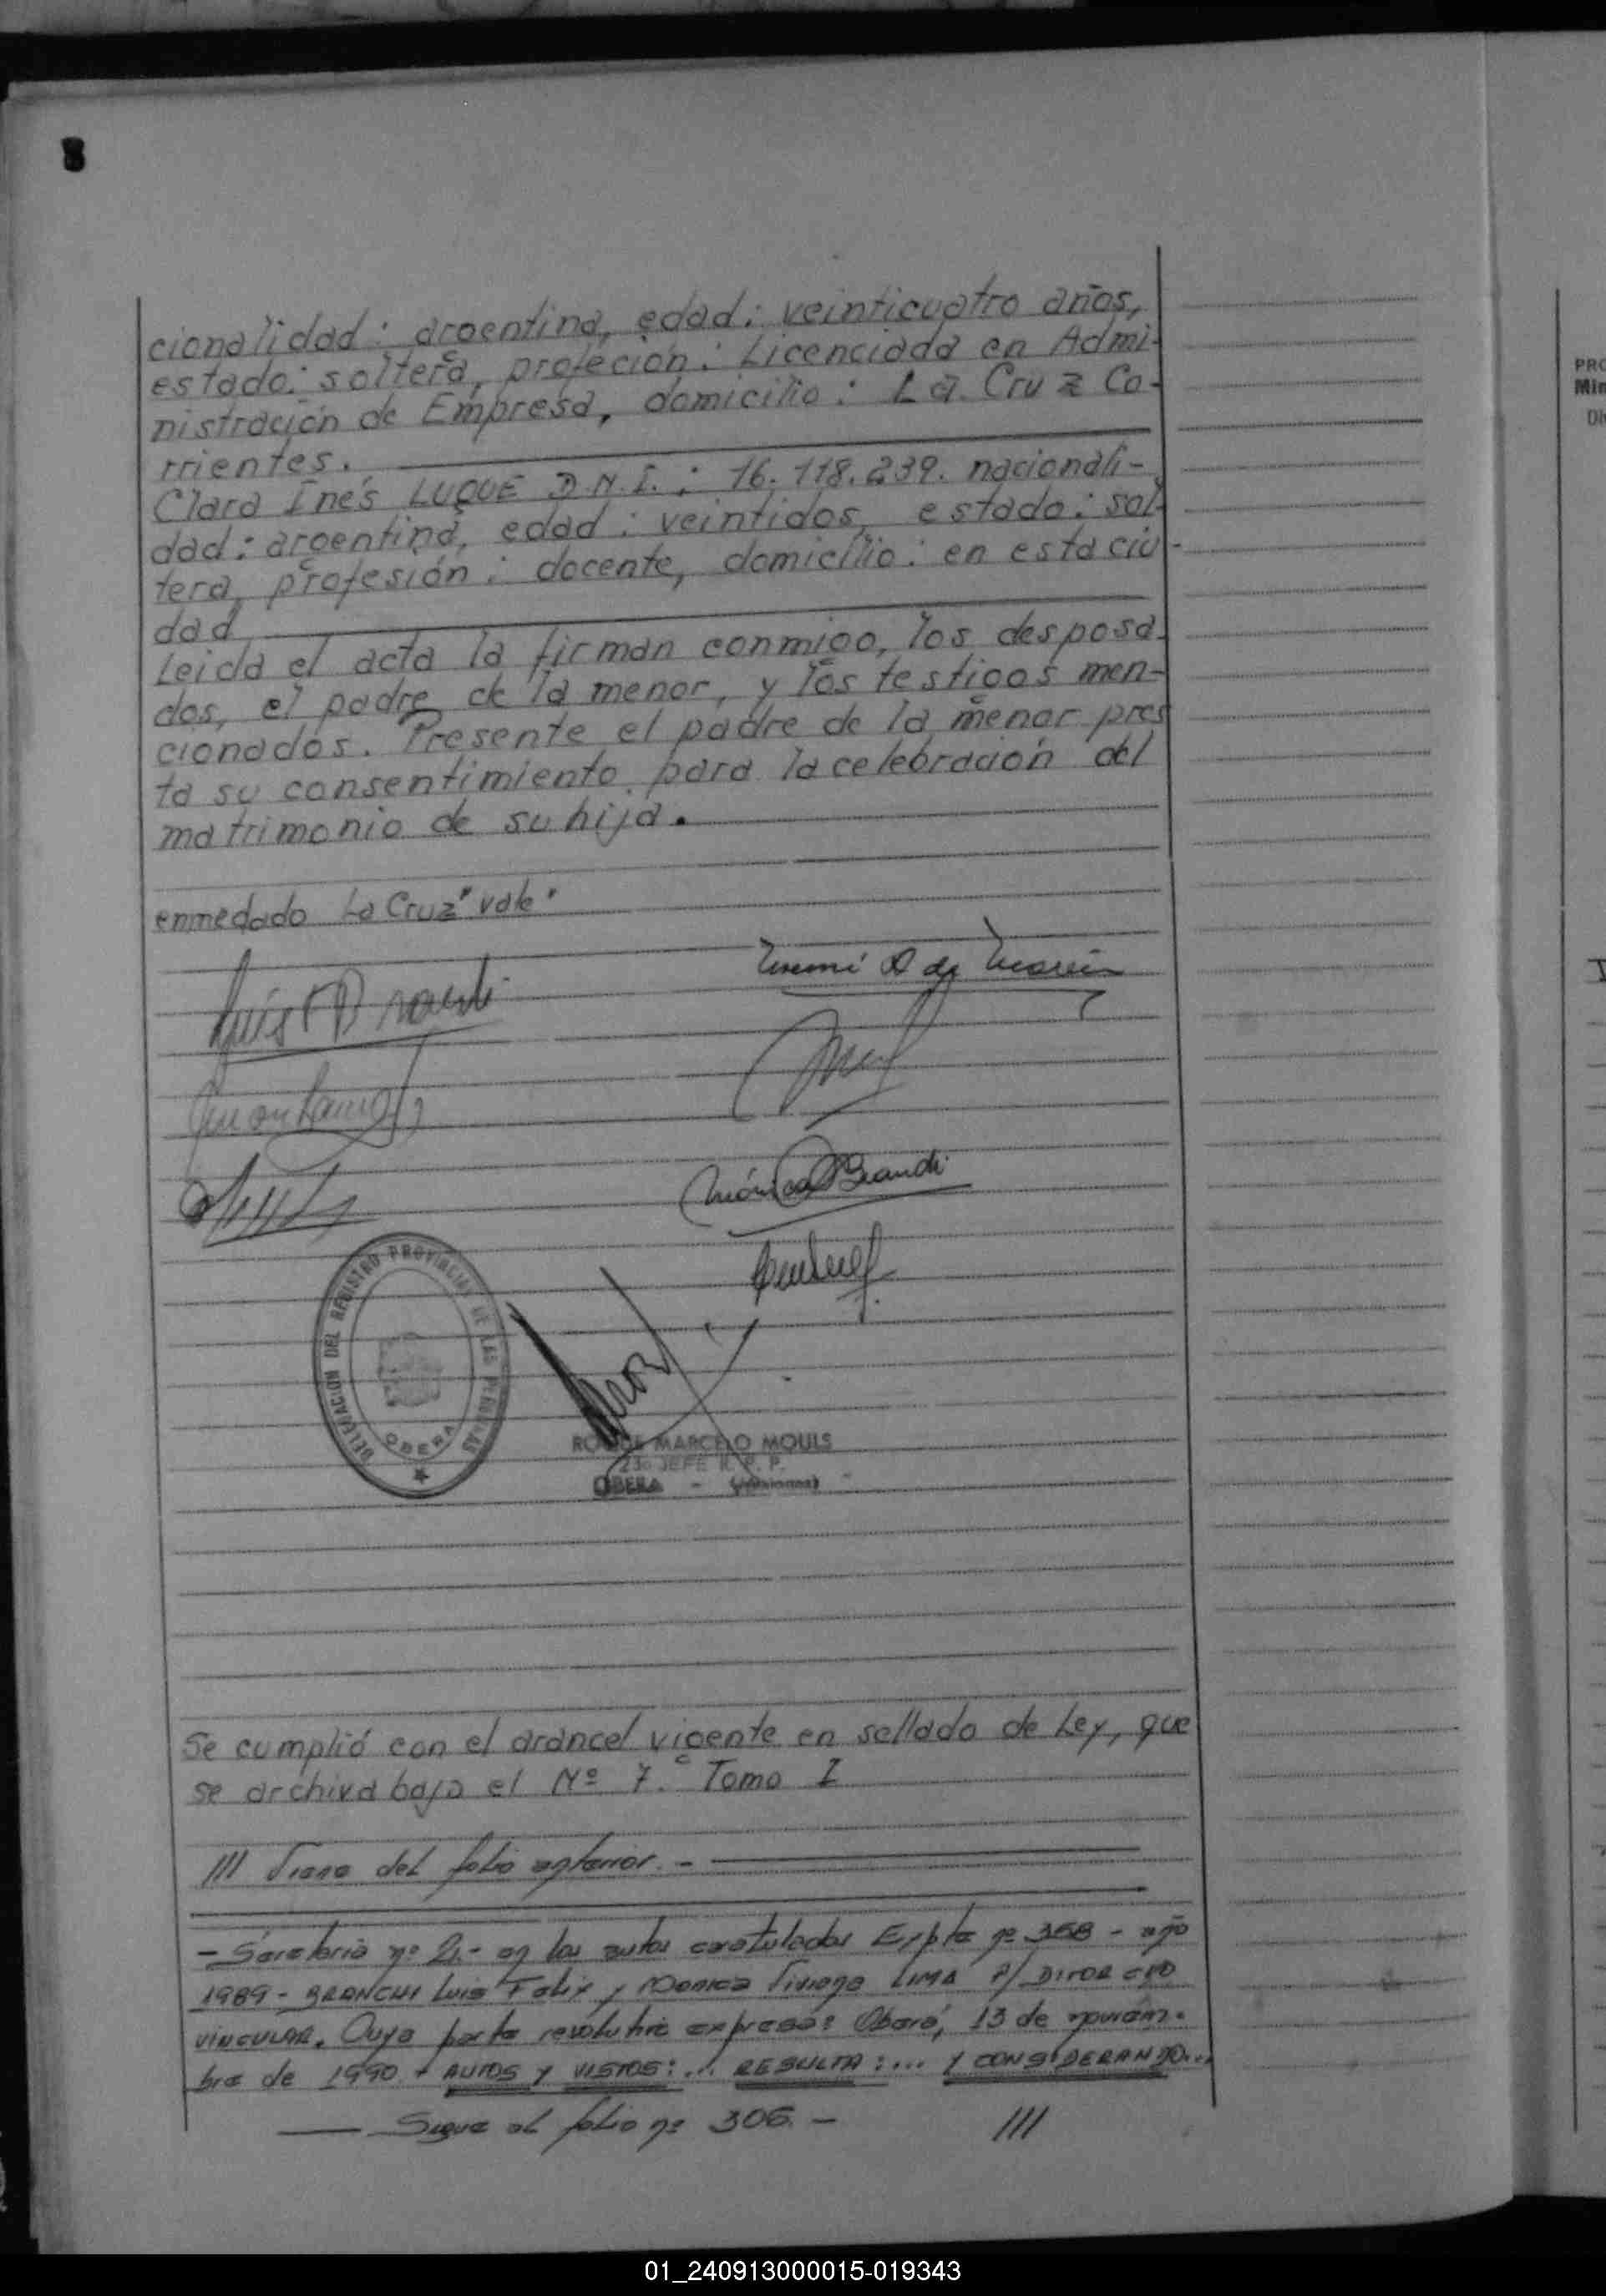 cionalidad: argentina, edad: veinticuatro años,
estado: soltera, profeción: Licenciada en Admi-
nistración de Empresa, domicilio: La Cruz Co-
rrientes.
Clara Inés LUQUE D.N.I.: 16.118.239. nacionali-
dad: argentina, edad: veintidos, estado: sol-
tera, profesión: docente, domicilio: en esta ciu-
dad
Leida el acta la firman conmigo, los desposa-
dos, el padre de la menor, y los testigos men-
cionados. Presente el padre de la menor pres
ta su consentimiento para la celebración del
matrimonio de su hija.
enmedado La Cruz" vale"
DELEGACION DEL REGISTRO PROVINCIAL DE LAS PERSONAS
OBERA
ROQUE MARCELO MOULS
JEFE R. P. P.
OBERA - (Misiones)
Se cumplió con el arancel vigente en sellado de Ley, que
se archiva bajo el Nº 7. Tomo I
/// Viene del folio anterior. -
- Secretaria nº 2.- en los autos caratulados Expte nº 358 - año
1989 - BRANCHI Luis Felix y Monica Viviana LIMA P/ DIVORCIO
VINCULAR. Cuya parte resolutiva expresa: Oberá, 13 de noviem-
bre de 1990. AUTOS Y VISTOS: ... RESULTA: ... Y CONSIDERANDO...
Sigue al folio nº 306. - ///
01_240913000015-019343